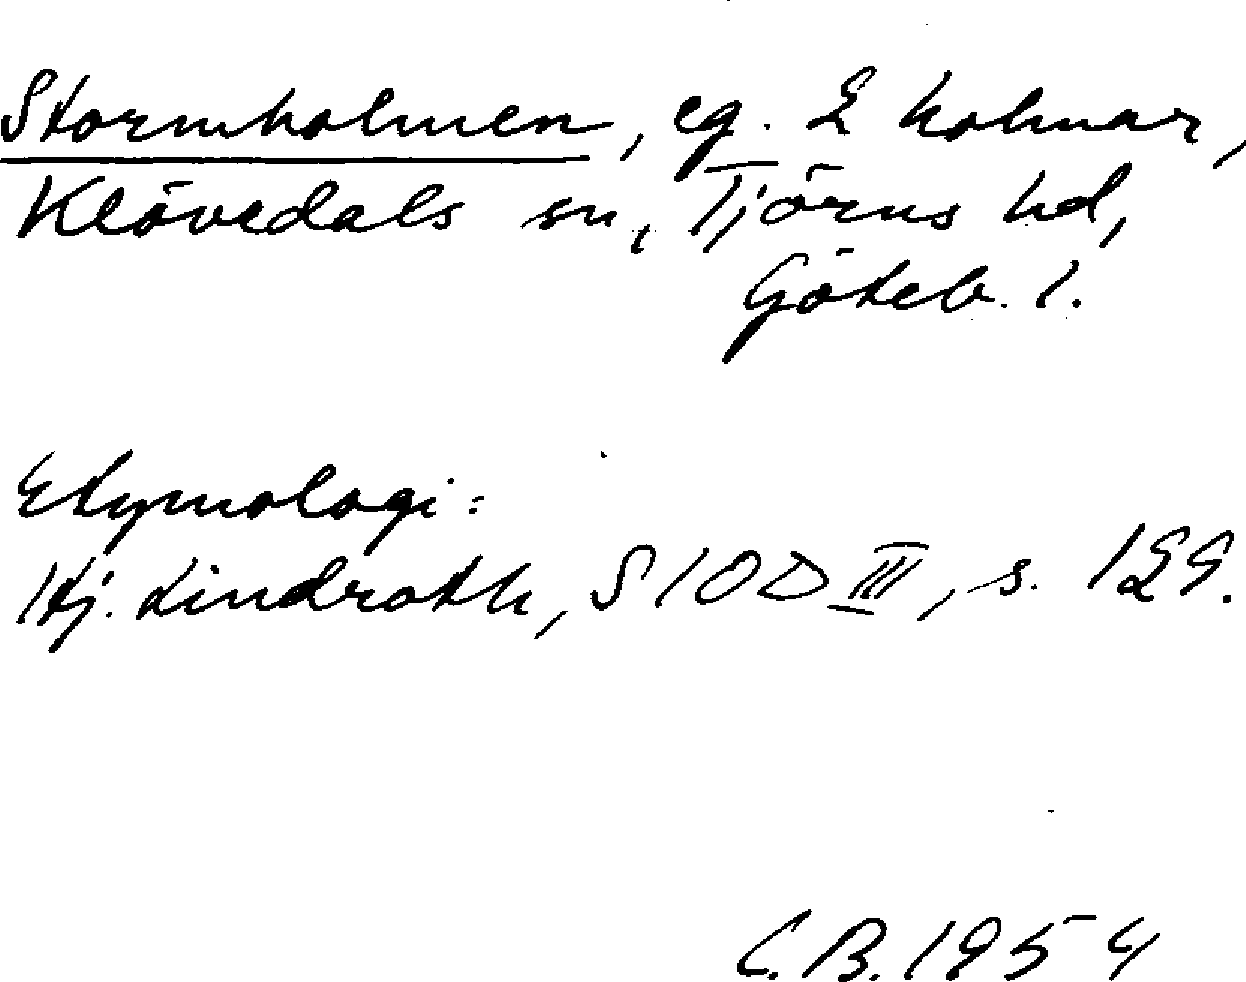 Stormholmen, eg. 2 holmar,
Klövedals sn, Tjörns hd,
Göteb. l.
Etymologi:
Hj. Lindroth, SIOD III, s. 129.
C.B. 1954